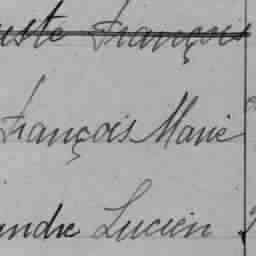 uste François
François Marie
andre Lucien